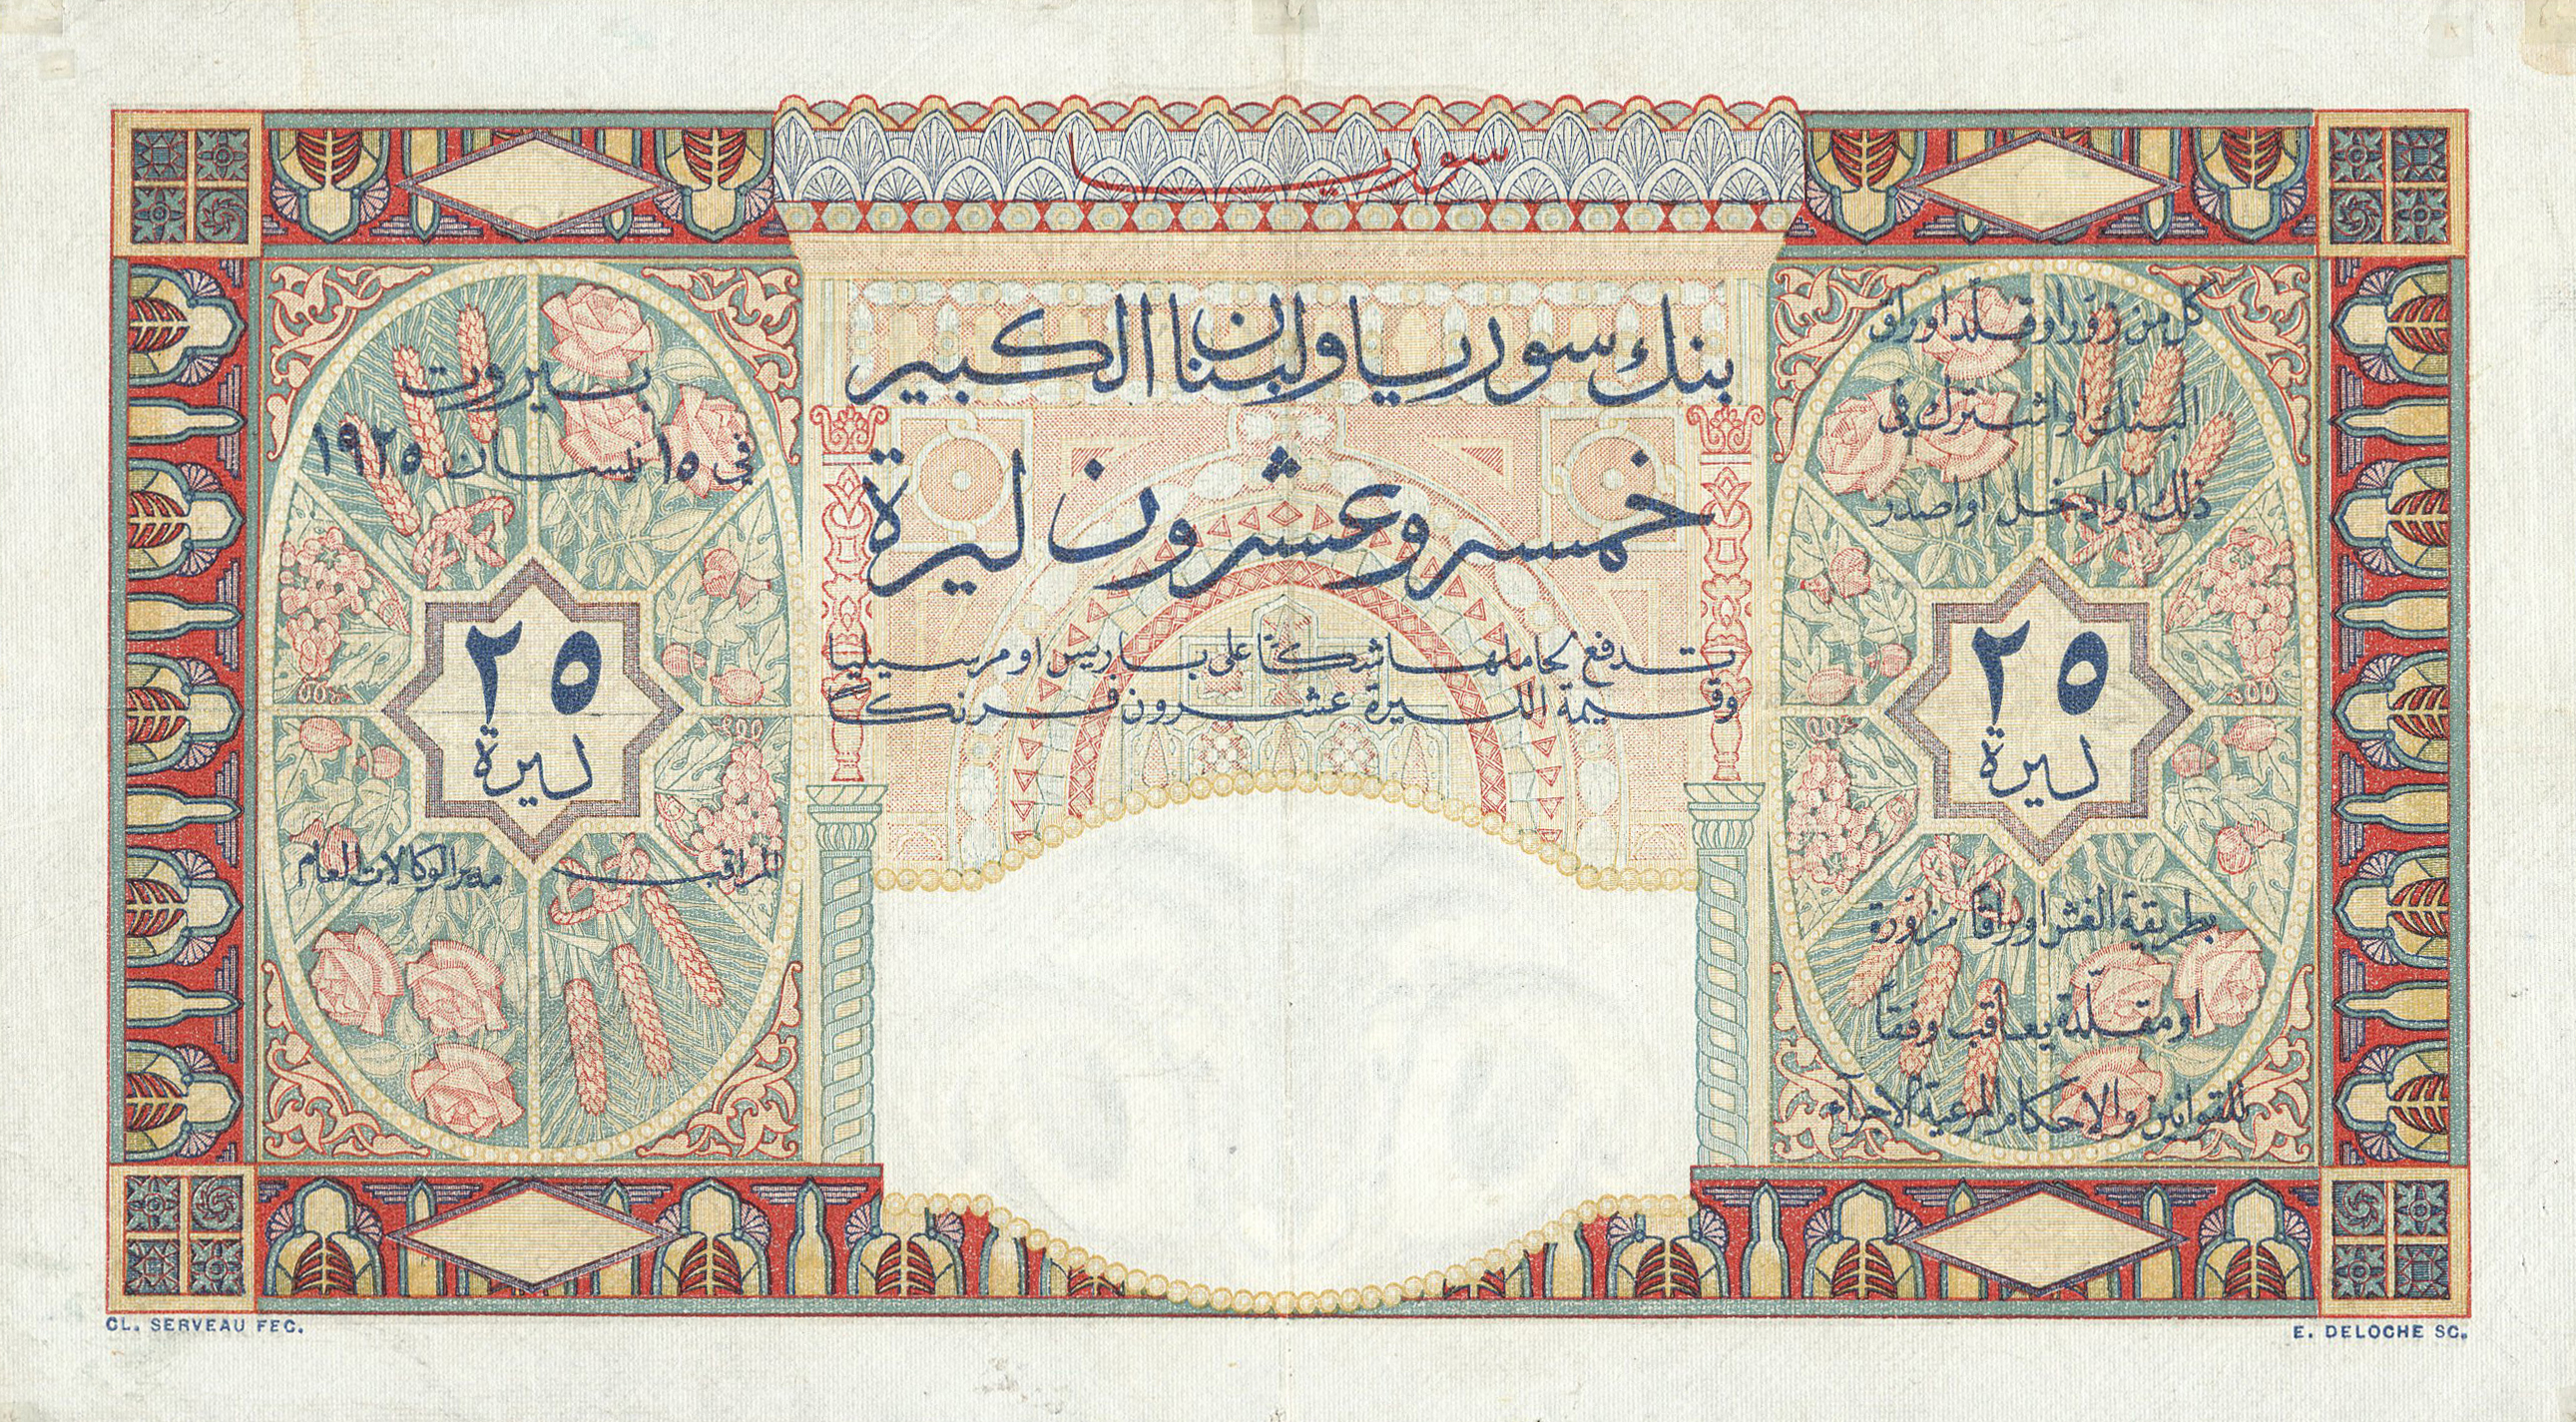 سوريا
بنك سوريا ولبنان الكبير
خمسه وعشرون ليرة
تدفع لحاملها شكّا على باريس او مرسيليا
وقيمة الليرة عشرون فرنكاً
كل من زوّر او قلّد اوراق
البنك او اشترك في
ذلك او ادخل او اصدر
٢٥
ليرة
بطريقة الغش اوراقاً مزوّرة
او مقلّدة يعاقب وفقاً
للقوانين والاحكام المرعية الاجراء
بيروت
في ١٥ نيسان ١٩٢٥
٢٥
ليرة
المراقب
مدير الوكالات العام
CL. SERVEAU FEC.
E. DELOCHE SC.